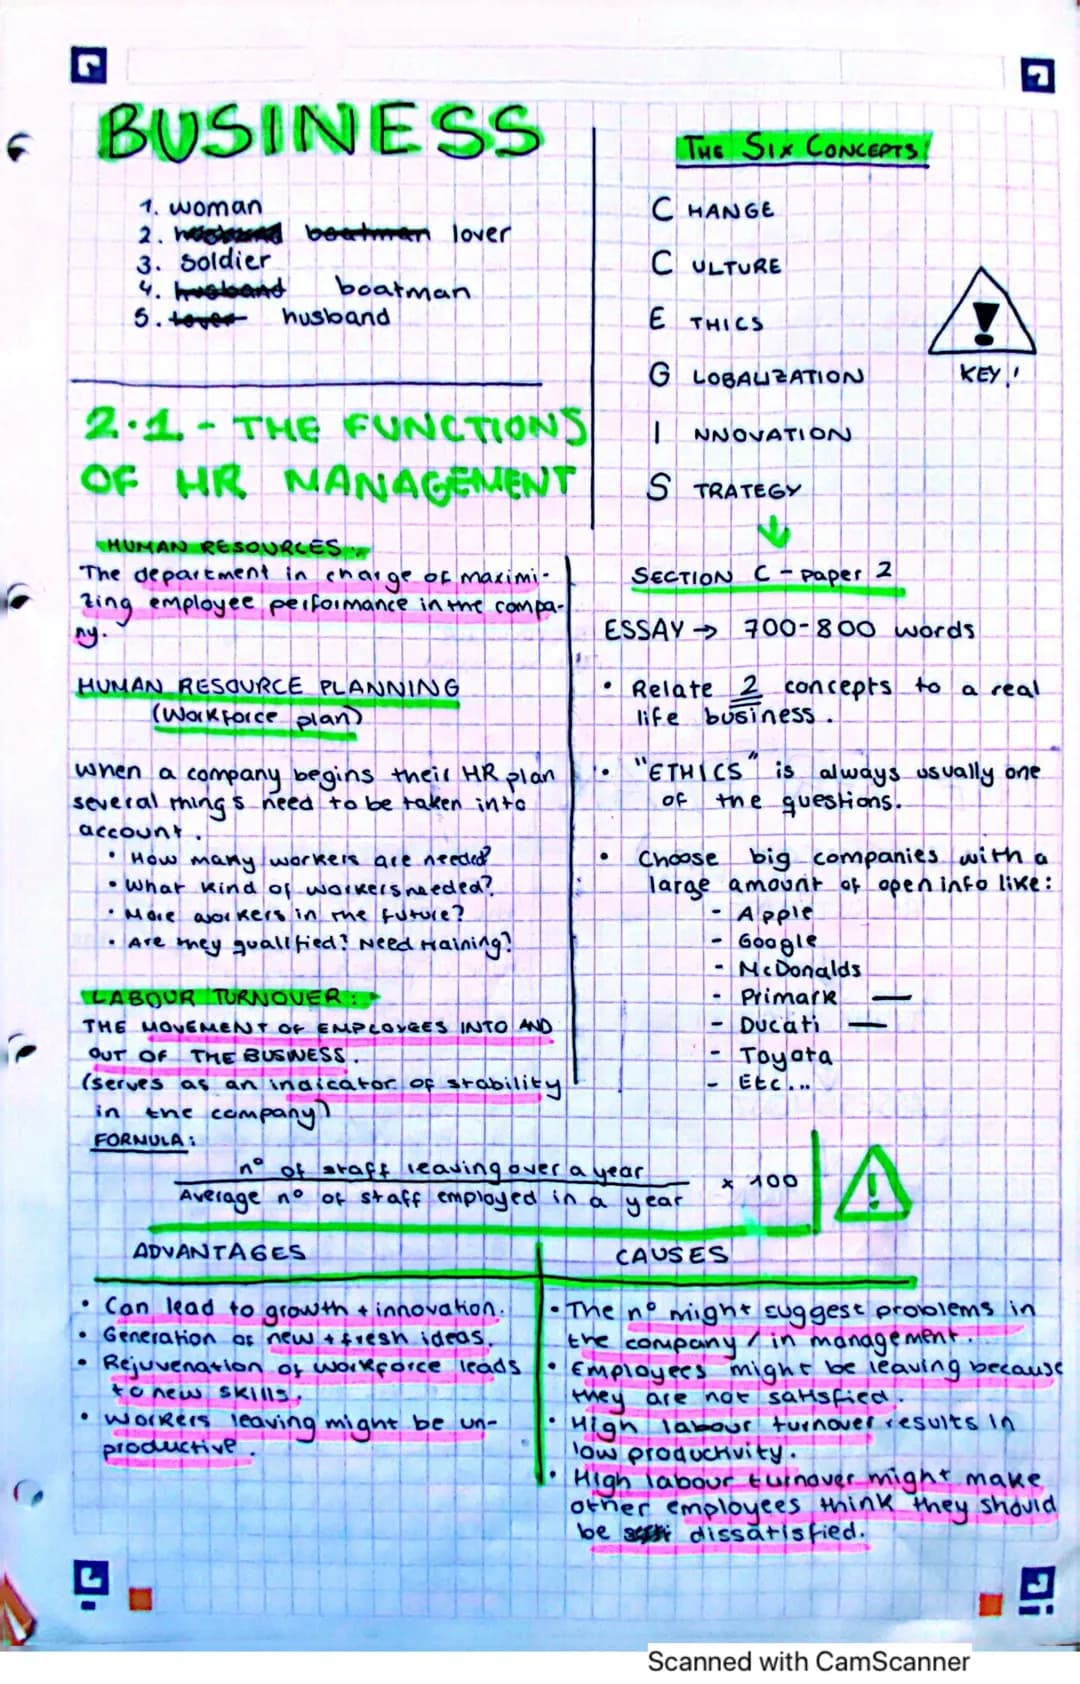 BUSINESS
1. woman
2. husband boatman lover
3. soldier
4. husband boatman
5. lover husband
THE SIX CONCEPTS:
C HANGE
C ULTURE
E THICS
G LOBALIZATION
I NNOVATION
S TRATEGY
KEY!
2.1 - THE FUNCTIONS
OF HR MANAGEMENT
HUMAN RESOURCES:
The department in charge of maximi-
zing employee performance in the compa-
ny.
HUMAN RESOURCE PLANNING
(Workforce plan)
When a company begins their HR plan
several things need to be taken into
account.
• How many workers are needed?
• What kind of workers needed?
• More workers in the future?
• Are they qualified? Need training?
LABOUR TURNOVER:
THE MOVEMENT OF EMPLOYEES INTO AND
OUT OF THE BUSINESS.
(serves as an indicator of stability
in the company)
FORMULA:
nº of staff leaving over a year
Average nº of staff employed in a year
x 100
SECTION C - paper 2
ESSAY → 700-800 words
• Relate 2 concepts to a real
life business.
• "ETHICS" is always usually one
of the questions.
• Choose big companies with a
large amount of open info like:
- Apple
- Google
- McDonalds
- Primark —
- Ducati —
- Toyota
- Etc...
ADVANTAGES
• Can lead to growth + innovation.
• Generation of new + fresh ideas.
• Rejuvenation of workforce leads
to new skills.
• Workers leaving might be un-
productive.
CAUSES
• The nº might suggest problems in
the company / in management.
• Employees might be leaving because
they are not satisfied.
• High labour turnover results in
low productivity.
• High labour turnover might make
other employees think they should
be dissatisfied.
Scanned with CamScanner